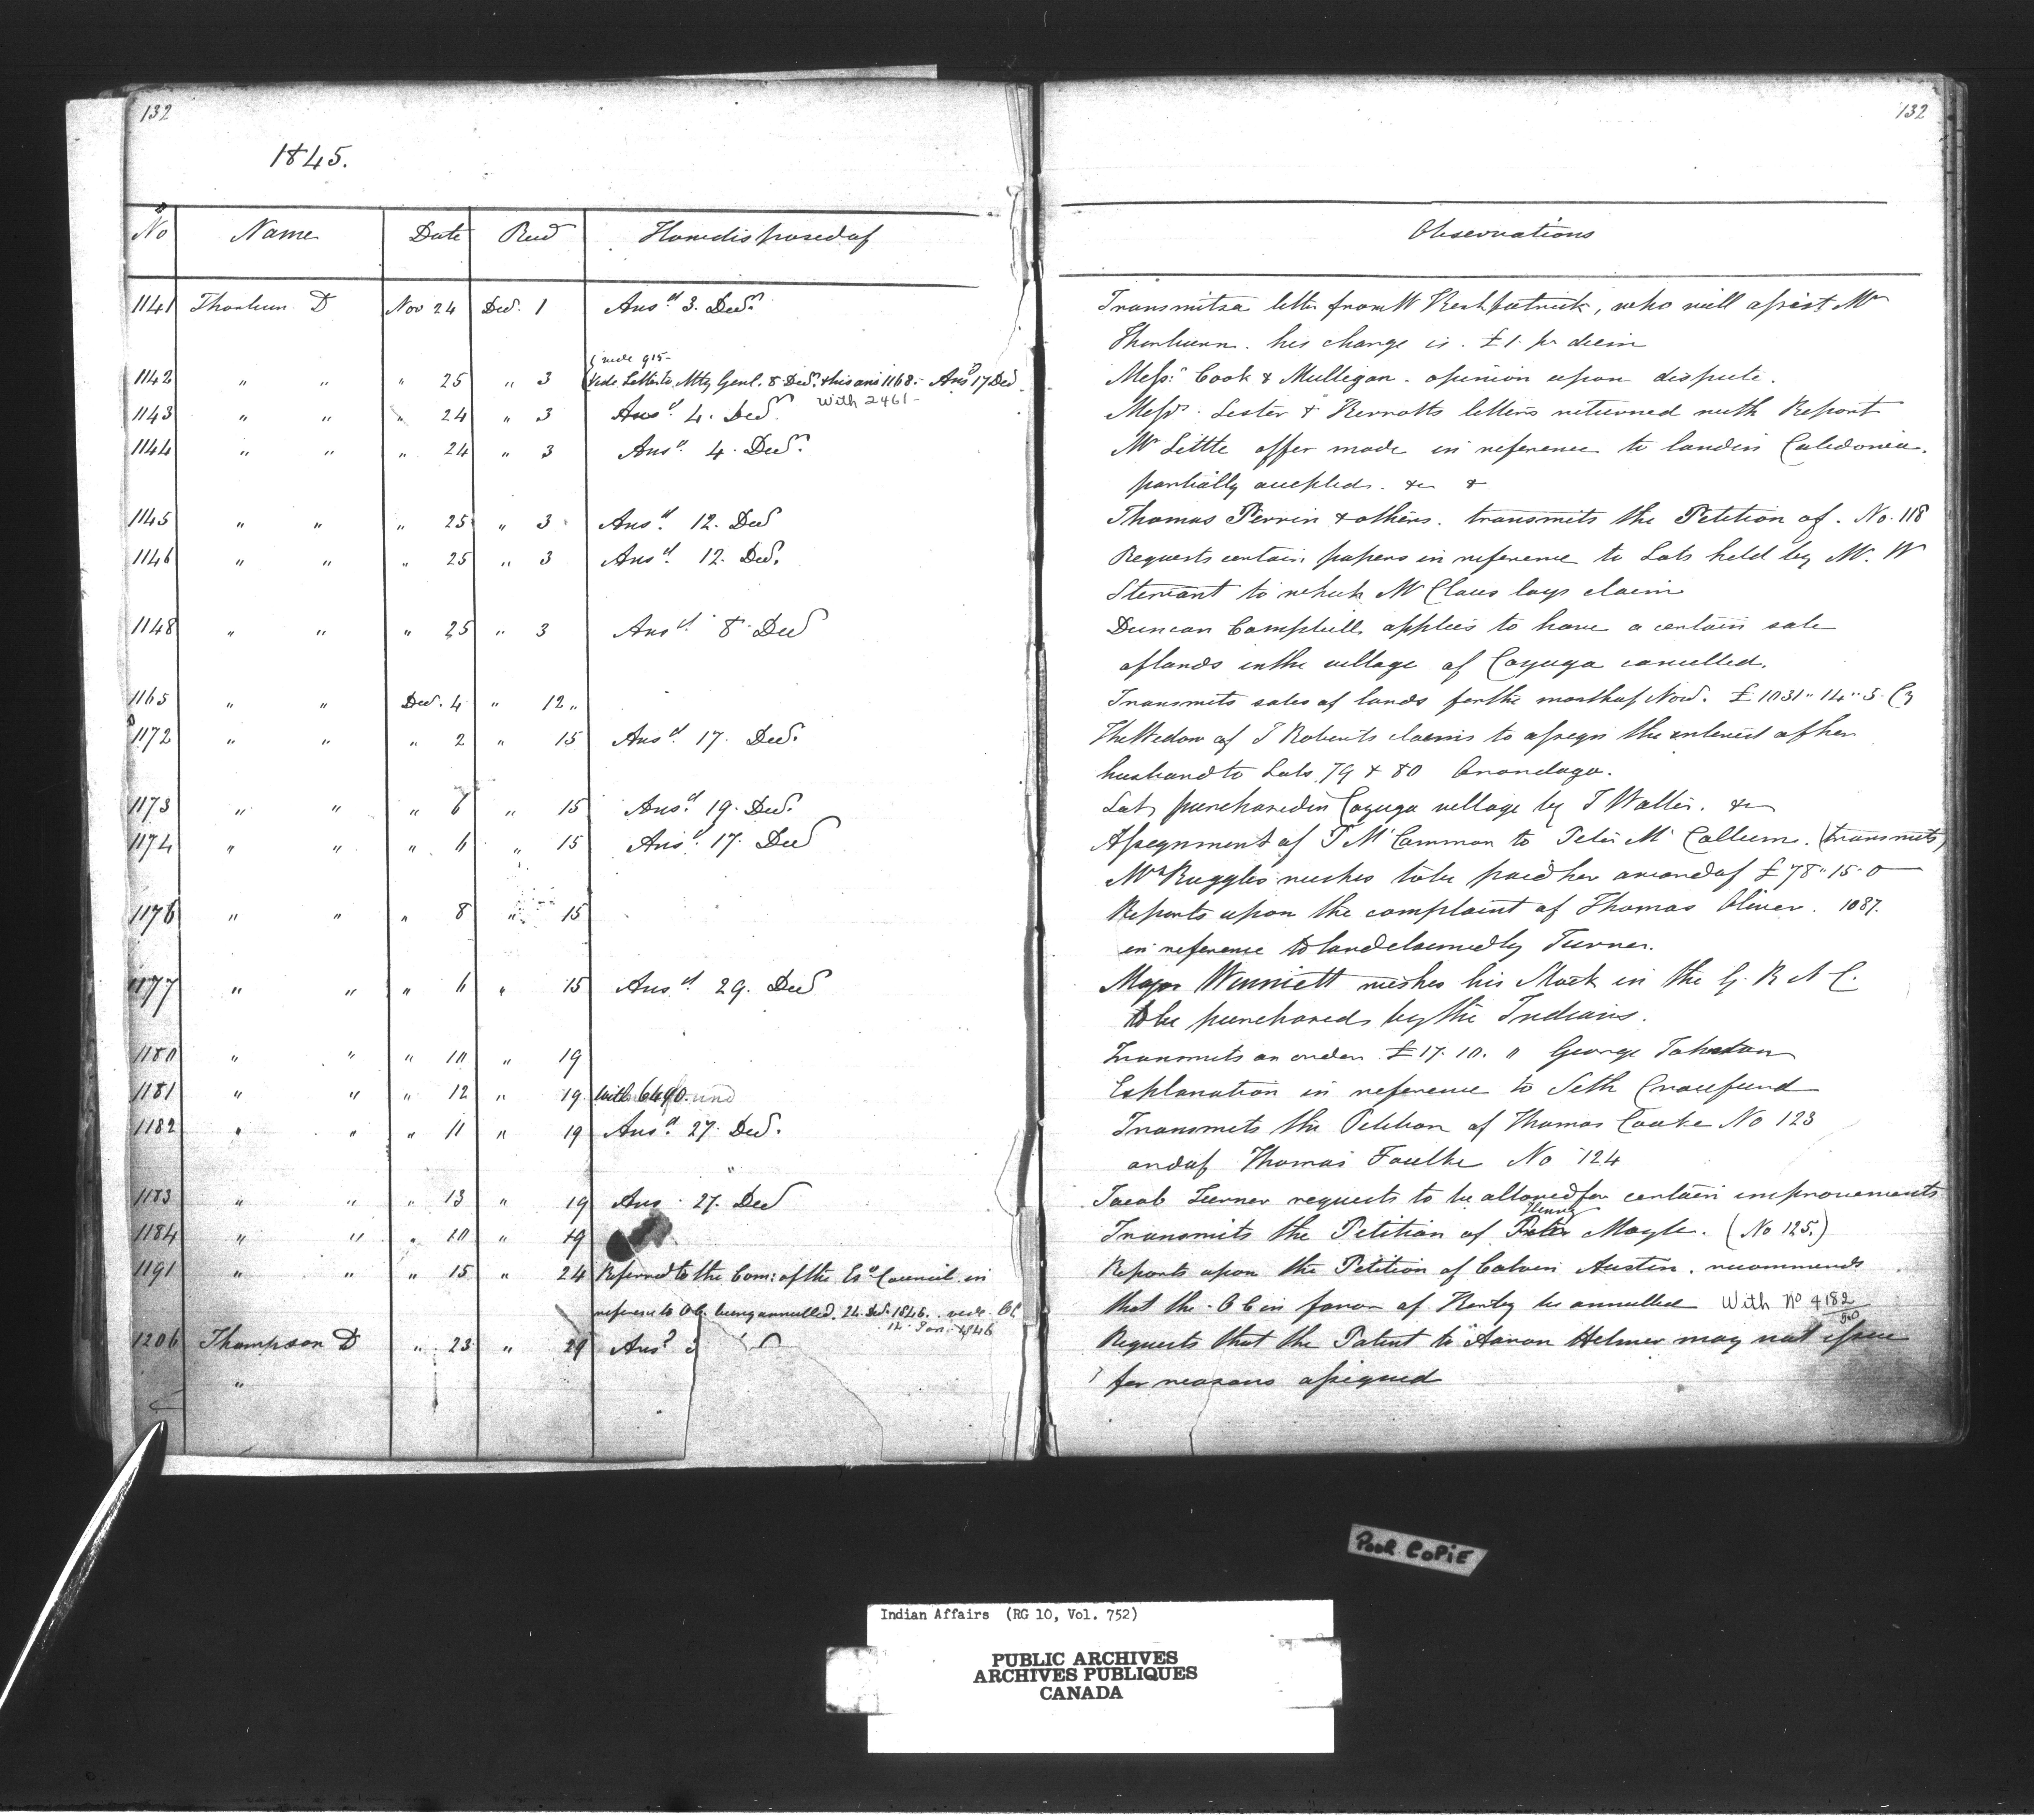 132
1845.
No Name Date Recd How disposed of
1141 Thorburn D Nov 24 Decr 1 Ansd 3. Decr
(vide 915-
1142 " " " 25 " 3 (Vide Letter to Atty Genl. 8 Decr & his ans 1168.- Ansd 17 Decr
With 2461-
1143 " " " 24 " 3 Ansd 4. Decr
1144 " " " 24 " 3 Ansd 4. Decr
1145 " " " 25 " 3 Ansd 12. Decr
1146 " " " 25 " 3 Ansd 12. Decr
1148 " " " 25 " 3 Ansd 8 Decr
1165 " " Decr. 4 " 12 "
1172 " " " 2 " 15 Ansd 17. Decr
1173 " " " 6 " 15 Ansd 19. Decr
1174 " " " 6 " 15 Ansd 17. Decr
1176 " " " 8 " 15
1177 " " " 6 " 15 Ansd 29. Decr
1180 " " " 10 " 19
1181 " " " 12 " 19 with 6490.
1182 " " " 11 " 19 Ansd 27. Decr
1183 " " " 13 " 19 Ans 27. Decr
1184 " " " 10 " 19
1191 " " " 15 " 24 Referred to the Com: of the Exe Council in
reference to O C. being annulled. 24 Decr 1846. vide O C
12 Jan. 1846
1206 Thompson D " 23 " 29 Ansd
"
132
Observations
Transmits a letter from W Kirkpatrick, who will assist Mr
Thorburn. his charge is £1 pr diem
Messrs Cook & Mulligan. opinion upon dispute.
Messrs. Lester & letters returned with Report
Mr Little offer made in reference to land in Caledonia.
partially accepted. &c &
Thomas Perrin & others. transmits the Petition of. No. 118
Requests certain papers in reference to Lots held by Mr. W
Stewart to which Mr Claus lays claim
Duncan Campbell applies to have a certain sale
of lands in the village of Cayuga cancelled.
Transmits sales of lands for the month of Novr. £1031" 14" 5 Cy
The Widow of J Roberts claims to assign the interest of her
husband to Lots 79 & 80 Onondaga.
Lot purchased in Cayuga village by J Walter. &c
Assignment of P McCammon to Peter McCallum. (transmits)
Mrs Ruggles wishes to be paid her award of £78" 15" 0
Reports upon the complaint of Thomas Oliver. 1087.
in reference to land claimed by Turner.
Major Winniett wishes his Stock in the G. R N C.
to be purchased by the Indians.
Transmits an order £17. 10. 0 George Johnston
Explanation in reference to Seth Crawfurd
Transmits the Petition of Thomas Cooke No 123
and of Thomas Faulke No 124
Jacob Turner requests to be allowed for certain improvements
Henry
Transmits the Petition of Peter Moyle. (No 125.)
Reports upon the Petition of Calvin Austin. recommends
that the O C in favor of Henley be annulled With No 4182
Requests that the Patent to Aaron Helmer may not issue
for reasons assigned
Poor Copie
Indian Affairs (RG 10, Vol. 752)
PUBLIC ARCHIVES
ARCHIVES PUBLIQUES
CANADA